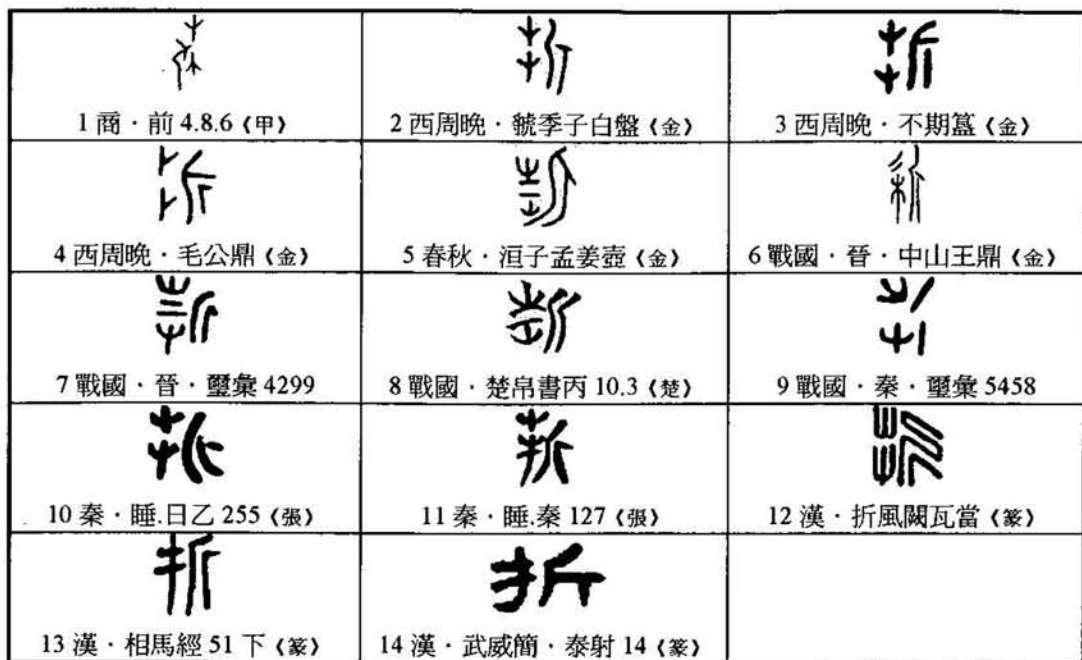 1 商．前 4.8.6《甲》
2 西周晚．虢季子白盤《金》
3 西周晚．不期簋《金》
4 西周晚．毛公鼎《金》
5 春秋．洹子孟姜壺《金》
6 戰國．晉．中山王鼎《金》
7 戰國．晉．璽彙 4299
8 戰國．楚帛書丙 10.3《楚》
9 戰國．秦．璽彙 5458
10 秦．睡.日乙 255《張》
11 秦．睡.秦 127《張》
12 漢．折風闕瓦當《篆》
13 漢．相馬經 51 下《篆》
14 漢．武威簡．泰射 14《篆》